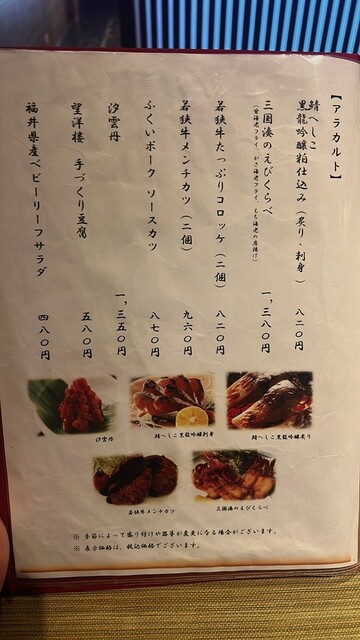 【アラカルト】
鯖へしこ
黒龍吟醸粕仕込み（炙り・刺身）　八二〇円
三国湊のえびくらべ　一、三八〇円
（甘海老フライ、がさ海老フライ、もち海老の唐揚げ）
若狭牛たっぷりコロッケ（二個）　八二〇円
若狭牛メンチカツ（二個）　九六〇円
ふくいポーク　ソースカツ　八七〇円
汐雲丹　一、三五〇円
望洋楼　手づくり豆腐　五八〇円
福井県産ベビーリーフサラダ　四八〇円
汐雲丹
鯖へしこ黒龍吟醸刺身
鯖へしこ黒龍吟醸炙り
若狭牛メンチカツ
三国湊のえびくらべ
※ 季節によって盛り付けや器等が変更になる場合がございます。
※ 表示価格は、税込価格でございます。